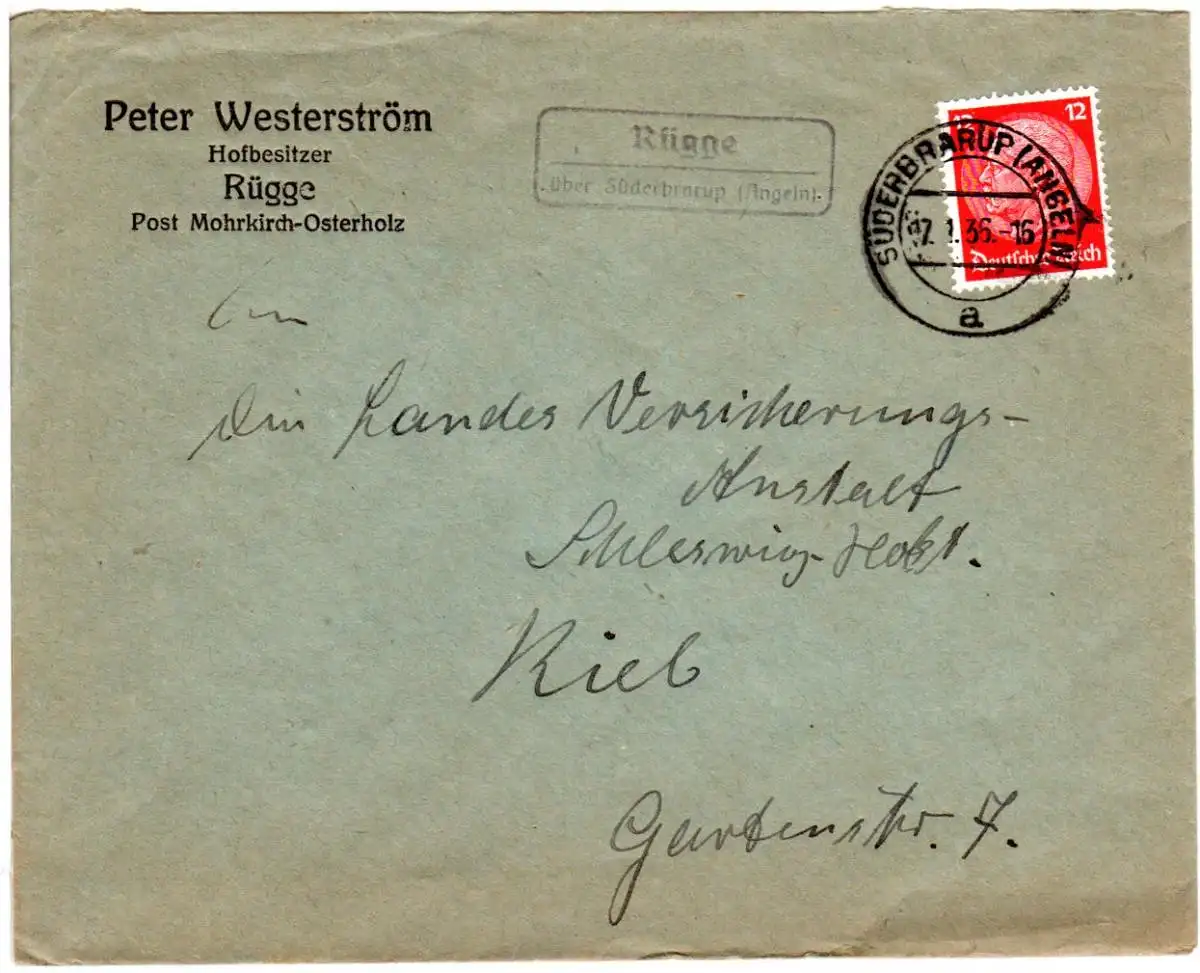 Peter Westerström
Hofbesitzer
Rügge
Post Mohrkirch-Osterholz
Rügge
über Süderbrarup (Angeln).
12
Deutsches Reich
SÜDERBRARUP (ANGELN)
7.1.36.-16
a
An
Die Landes Versicherungs-
Anstalt
Schleswig-Holst.
Kiel
Gartenstr. 7.